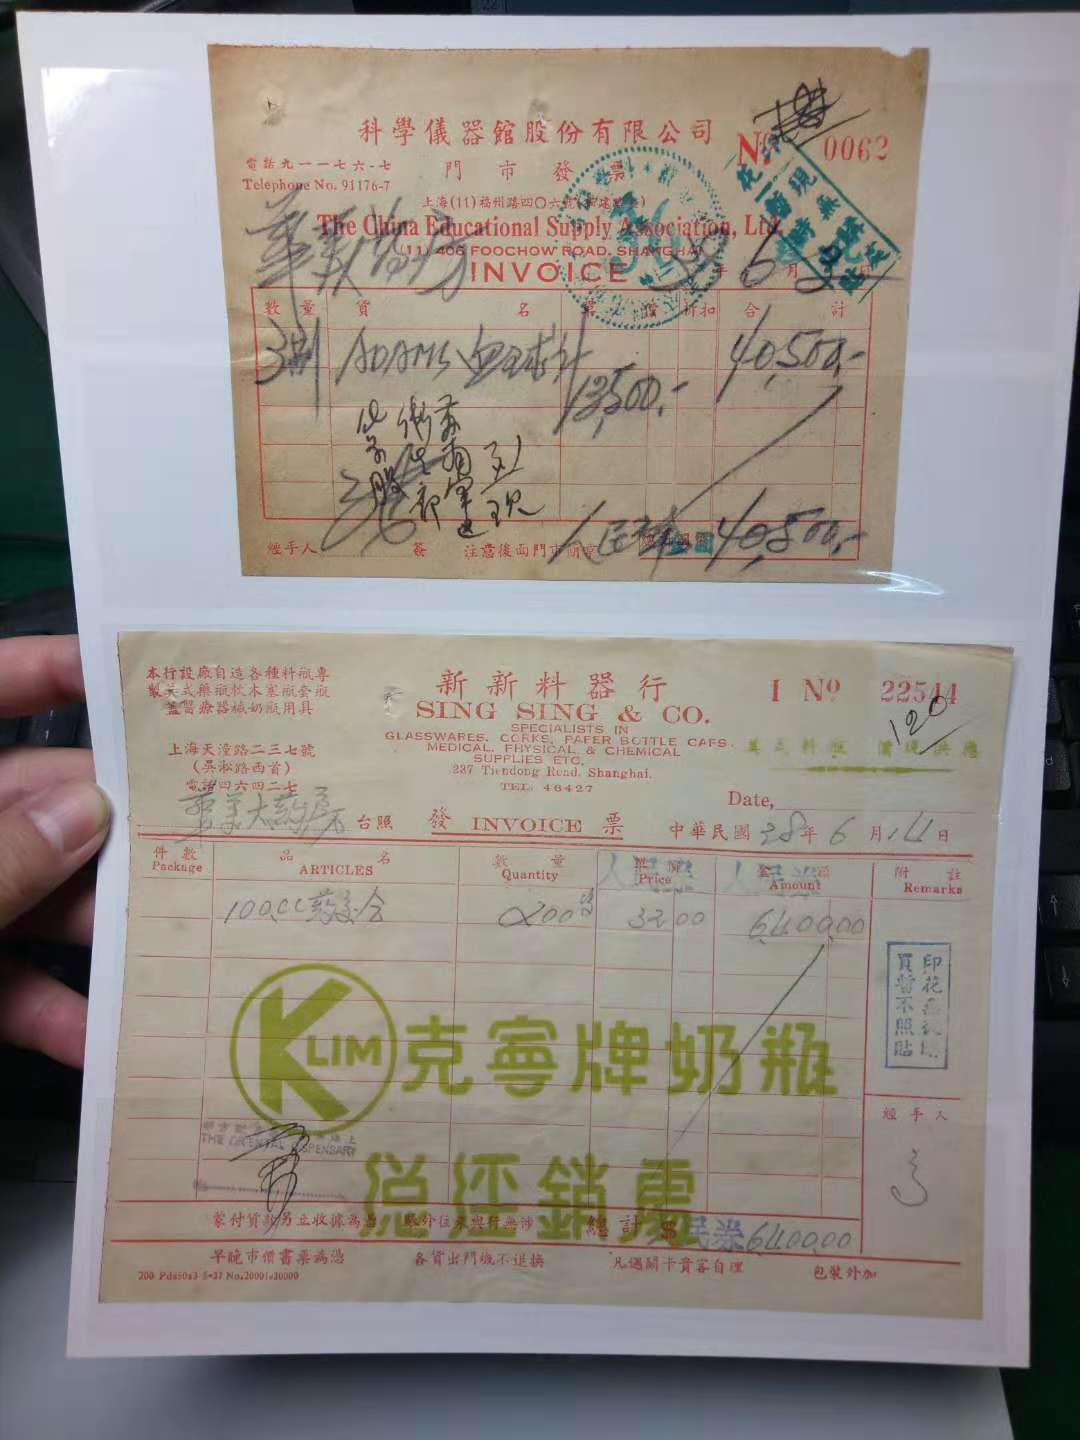 科學儀器館股份有限公司
Nº 0062
電話九一一七六-七
門市發票
Telephone No. 91176-7
The China Educational Supply Association, Ltd.
(11) 406 FOOCHOW ROAD, SHANGHAI
INVOICE
38年6月2日
數量 貨名 單價 折扣 合計
3 ADAMS 血球計 13,500.- 40,500.-
經手人 簽
人民券 40,500.-
本行設廠自造各種料瓶專
製美式藥瓶軟木塞瓶套瓶
蓋醫療器械奶瓶用具
新新料器行
I Nº 22544
SING SING & CO.
120
SPECIALISTS IN
GLASSWARES, CORKS, PAPER BOTTLE CAPS,
MEDICAL, PHYSICAL, & CHEMICAL
SUPPLIES ETC.
237 Tiendong Road, Shanghai.
TEL. 46427
上海天潼路二三七號
(吳淞路西首)
電話四六四二七
Date,
華美大藥房台照
發 INVOICE 票
中華民國38年6月14日
件數 品名 數量 單價 金額 附註
Package ARTICLES Quantity Price Amount Remarks
100CC 200 32.00 6,400.00
印花
買暫不照貼
KLIM 克寧牌奶瓶
總經銷處
THE ORIENTAL DISPENSARY
經手人
總計 人民券 6400.00
早晚市價書票為憑
各貨出門概不退換
凡遇關卡貴客自理
包裝外加